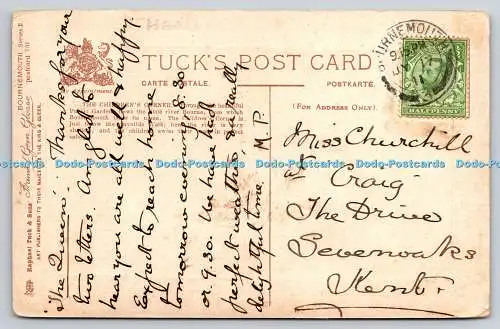 TUCK'S POST CARD
CARTE POSTALE.
POSTKARTE.
(FOR ADDRESS ONLY.)
BOURNEMOUTH
HALFPENNY
BOURNEMOUTH Series II
Raphael Tuck & Sons
ART PUBLISHERS TO THEIR MAJESTIES THE KING & QUEEN.
THE CHILDREN'S CORNER.
"The Queen". Thanks for your
two letters. Am glad to
hear you are all well & happy.
Expect to reach home
tomorrow evening, 8.30
or 9.30. We have had
perfect weather, & a really
delightful time.
M.P.
Miss Churchill
at Craig
The Drive
Sevenoaks
Kent.
Dodo-Postcards Dodo-Postcards Dodo-Postcards Dodo-Postcards Dodo-Postcards